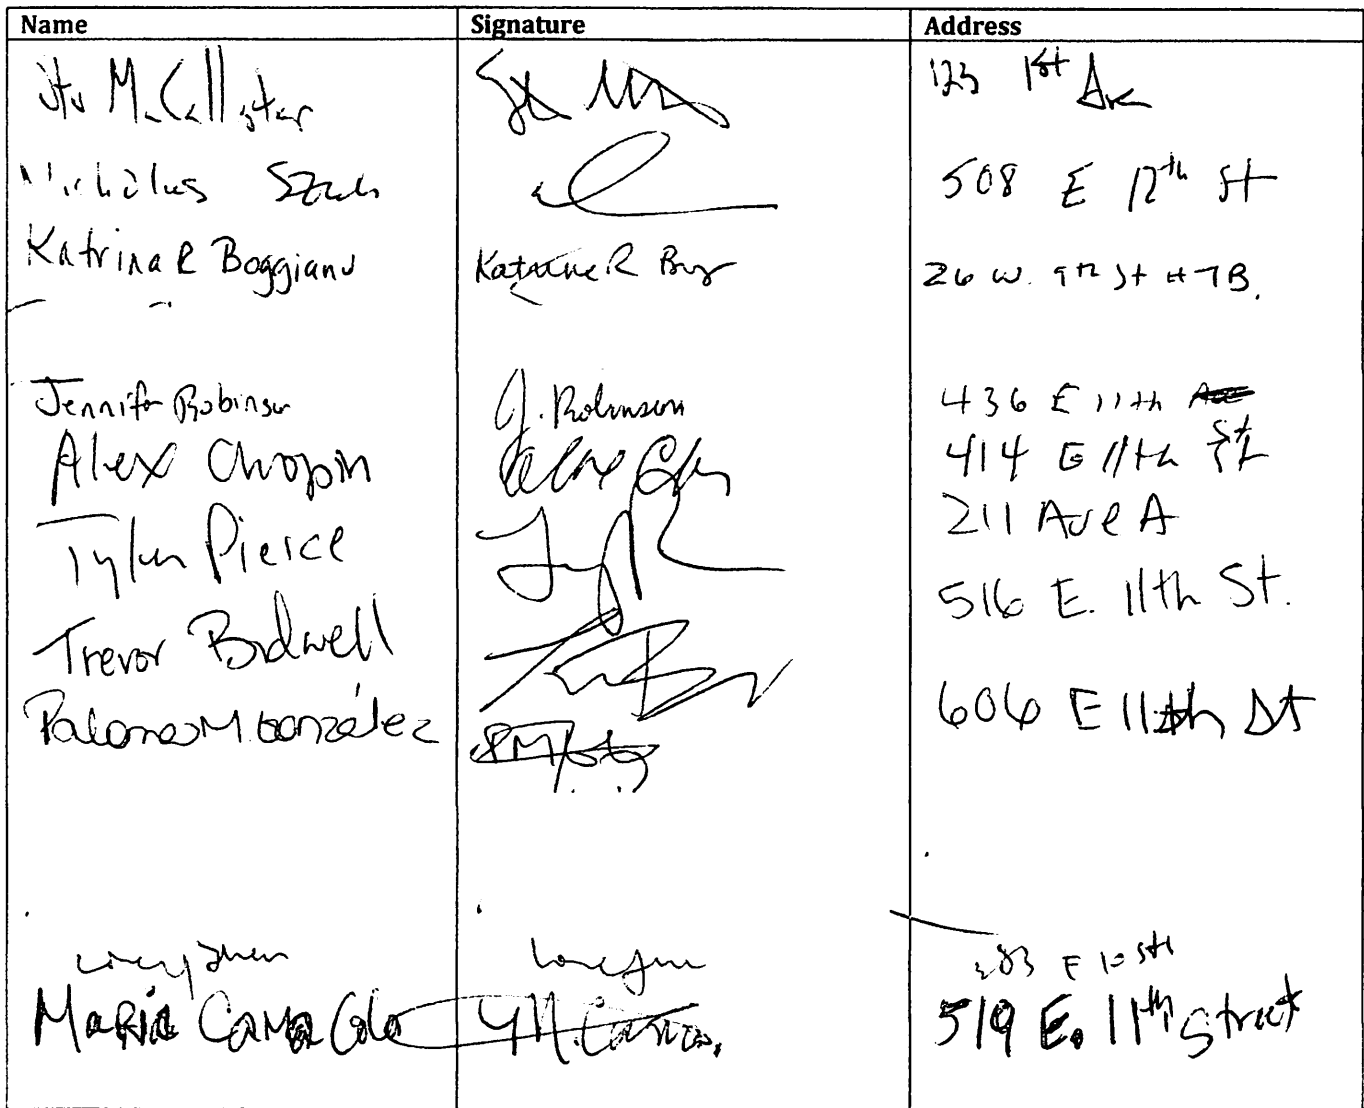 Name Signature Address
Stu McCallister 123 1st Ave
Nicholas 508 E 12th St
Katrina R Boggiano Katrina R Bog 26 W. 9th St #7B.
Jennifer Robinson J. Robinson 436 E 11th
Alex Chopin Alex 414 E 11th St
Tyler Pierce 211 Ave A
Trevor Bidwell 516 E. 11th St.
Paloma M. González 606 E 11th St
E 10 St
Maria 519 E. 11th Street